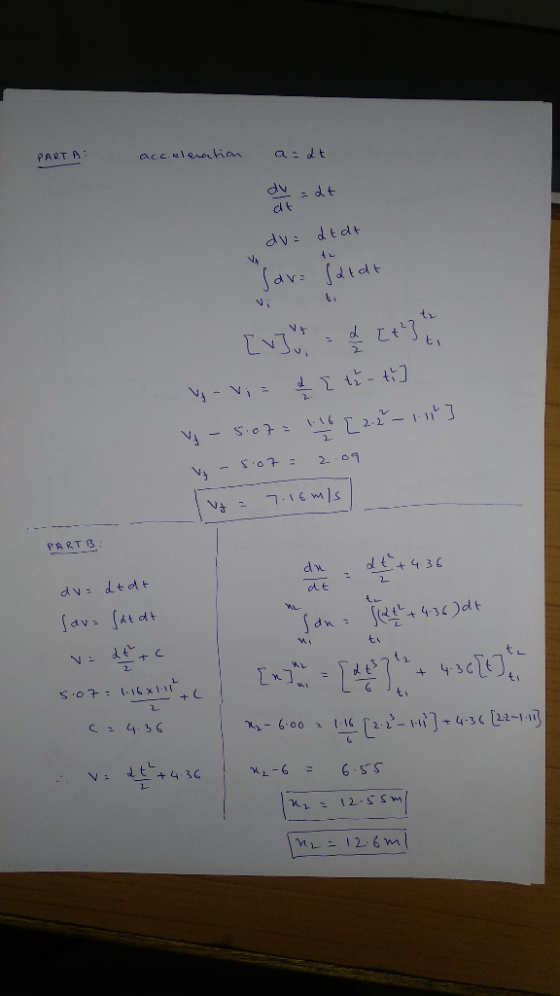 PART A: acceleration a = αt
dv/dt = αt
dv = αt dt
∫_{vi}^{vf} dv = ∫_{t1}^{t2} αt dt
[v]_{vi}^{vf} = α/2 [t²]_{t1}^{t2}
vf - vi = α/2 [t2² - t1²]
vf - 5.07 = 1.16/2 [2.2² - 1.11²]
vf - 5.07 = 2.09
vf = 7.16 m/s
PART B:
dv = αt dt
∫dv = ∫αt dt
v = αt²/2 + c
5.07 = 1.16×1.11²/2 + c
c = 4.36
∴ v = αt²/2 + 4.36
dx/dt = αt²/2 + 4.36
∫_{x1}^{x2} dx = ∫_{t1}^{t2} (αt²/2 + 4.36) dt
[x]_{x1}^{x2} = [αt³/6]_{t1}^{t2} + 4.36 [t]_{t1}^{t2}
x2 - 6.00 = 1.16/6 [2.2³ - 1.11³] + 4.36 [2.2 - 1.11]
x2 - 6 = 6.55
x2 = 12.55m
x2 = 12.6m